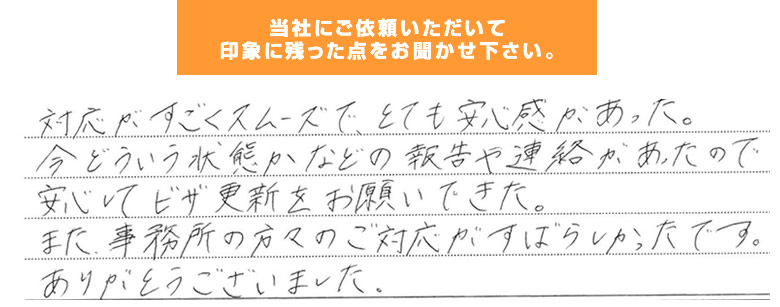 当社にご依頼いただいて
印象に残った点をお聞かせ下さい。
対応がすごくスムーズで、とても安心感があった。
今どういう状態かなどの報告や連絡があったので
安心してビザ更新をお願いできた。
また、事務所の方々のご対応がすばらしかったです。
ありがとうございました。